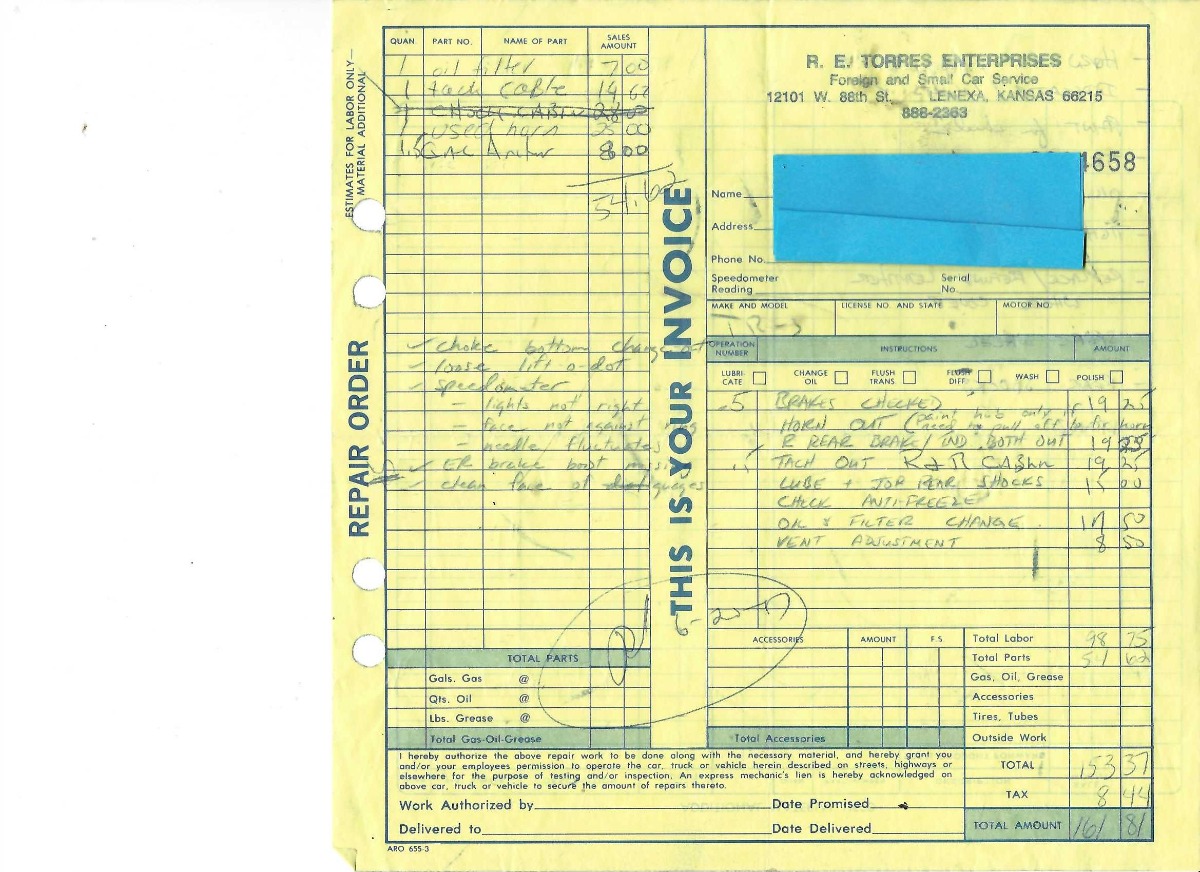 QUAN. PART NO. NAME OF PART SALES AMOUNT
1 oil filter 7 00
1 tach cable 14 62
1 CHOKE CABLE 28 00
1 used horn 25 00
1.5 8 00
54.62
ESTIMATES FOR LABOR ONLY—
MATERIAL ADDITIONAL
REPAIR ORDER
✓ choke bottom change out
✓ loose lift-o-dot
✓ speedometer
– lights not right
– face not against ring
– needle fluctuates
✓ ER brake boot missing
✓ clean face of gauges
TOTAL PARTS
Gals. Gas @
Qts. Oil @
Lbs. Grease @
Total Gas-Oil-Grease
THIS IS YOUR INVOICE
R. E. TORRES ENTERPRISES
Foreign and Small Car Service
12101 W. 88th St. LENEXA, KANSAS 66215
888-2363
4658
Name
Address
Phone No.
Speedometer Reading Serial No.
MAKE AND MODEL LICENSE NO. AND STATE MOTOR NO.
TR-3
OPERATION NUMBER INSTRUCTIONS AMOUNT
LUBRICATE CHANGE OIL FLUSH TRANS. FLUSH DIFF. WASH POLISH
.5 BRAKES CHECKED 19 25
HORN OUT (paint hub only if need to pull off to fix horn
R REAR BRAKE/IND BOTH OUT 19 25
TACH OUT R & R CABLE 19 25
LUBE + TOP REAR SHOCKS 15 00
CHECK ANTI-FREEZE
OIL & FILTER CHANGE 17 50
VENT ADJUSTMENT 8 50
ACCESSORIES AMOUNT F.S.
Total Accessories
Total Labor 98 75
Total Parts 54 62
Gas, Oil, Grease
Accessories
Tires, Tubes
Outside Work
TOTAL 153 37
TAX 8 44
TOTAL AMOUNT 161 81
I hereby authorize the above repair work to be done along with the necessary material, and hereby grant you
and/or your employees permission to operate the car, truck or vehicle herein described on streets, highways or
elsewhere for the purpose of testing and/or inspection. An express mechanic's lien is hereby acknowledged on
above car, truck or vehicle to secure the amount of repairs thereto.
Work Authorized by Date Promised
Delivered to Date Delivered
ARO 655-3